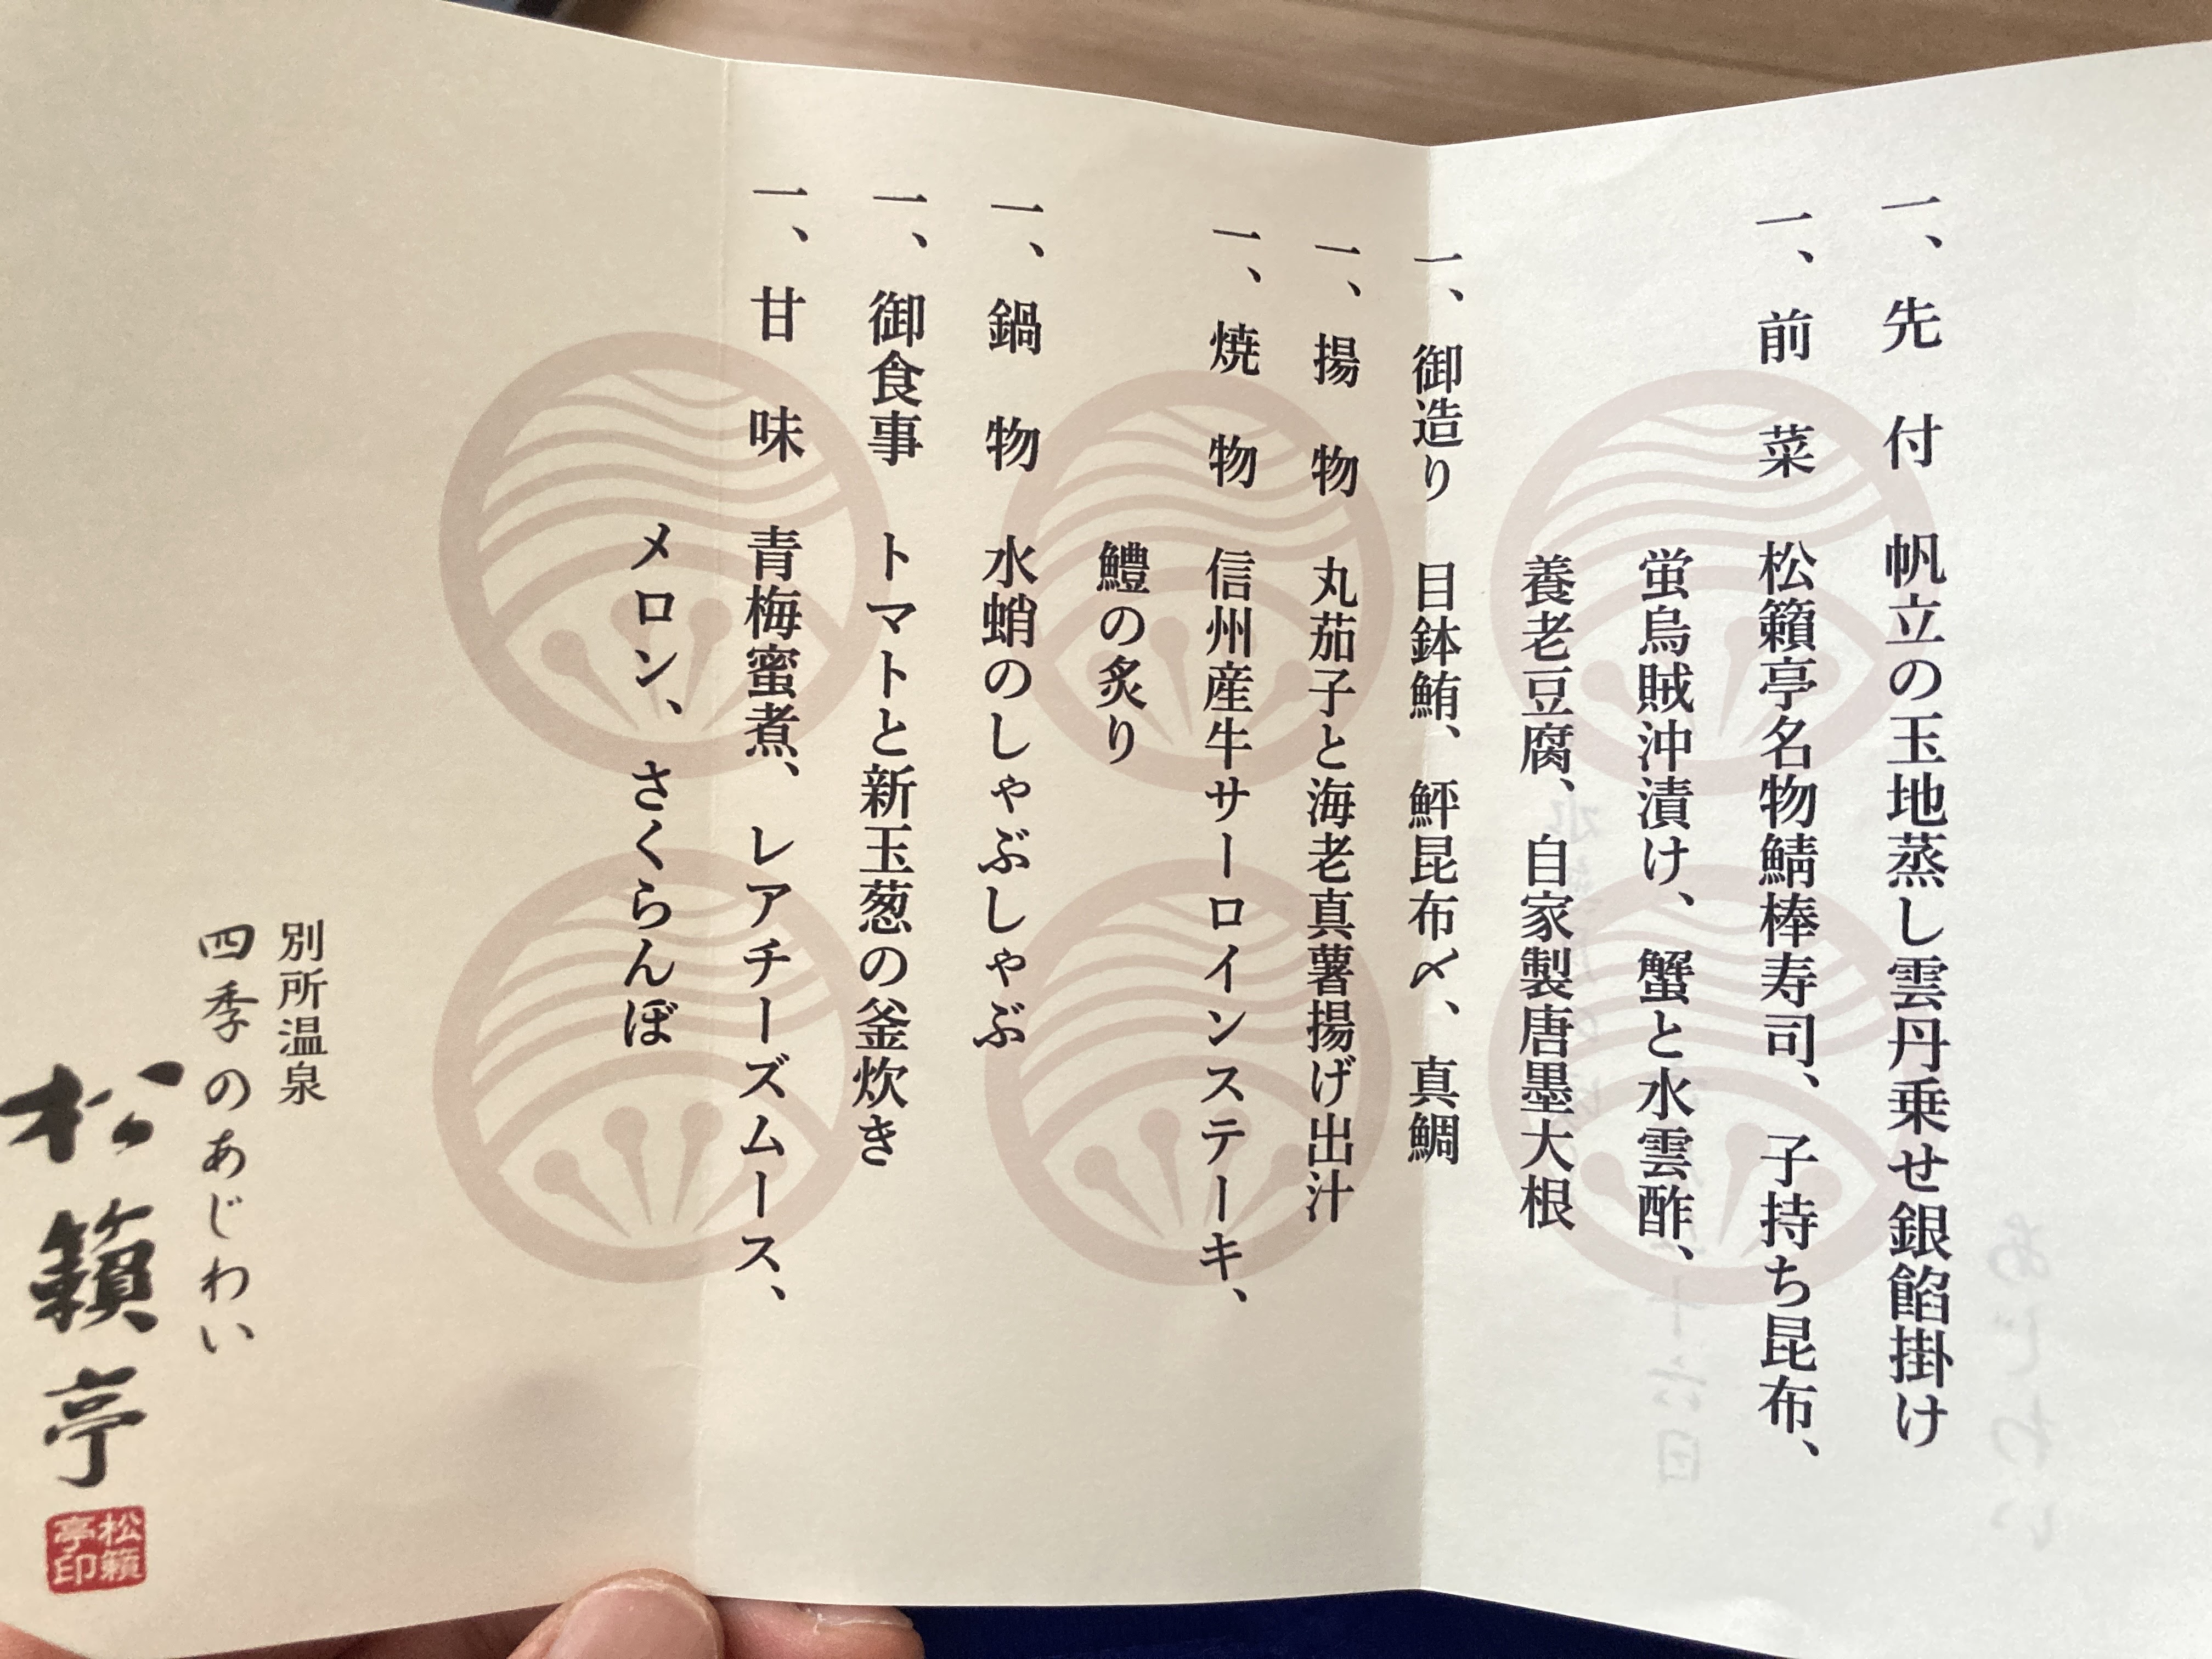 一、先付　帆立の玉地蒸し雲丹乗せ銀餡掛け
一、前菜　松籟亭名物鯖棒寿司、子持ち昆布、
蛍烏賊沖漬け、蟹と水雲酢、
養老豆腐、自家製唐墨大根
一、御造り　目鉢鮪、鮃昆布〆、真鯛
一、揚物　丸茄子と海老真薯揚げ出汁
一、焼物　信州産牛サーロインステーキ、
鱧の炙り
一、鍋物　水蛸のしゃぶしゃぶ
一、御食事　トマトと新玉葱の釜炊き
一、甘味　青梅蜜煮、レアチーズムース、
メロン、さくらんぼ
別所温泉
四季のあじわい
松籟亭
松籟亭印